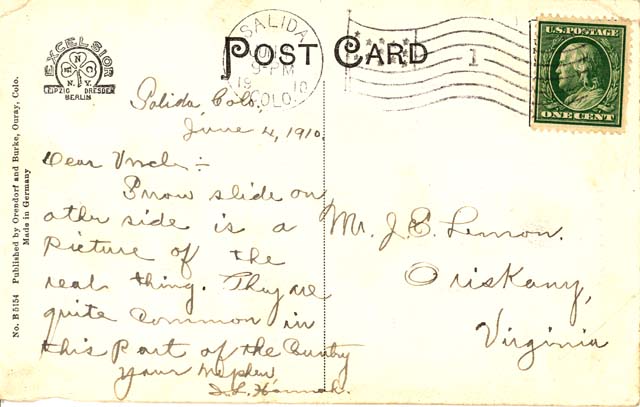 EXCELSIOR
A N C
N.Y.
LEIPZIG DRESDEN
BERLIN
POST CARD
SALIDA
9-PM
1910
COLO.
1
U.S. POSTAGE
ONE CENT
No. B5154 Published by Orendorf and Burke, Ouray, Colo.
Made in Germany
Salida Colo.
June 4, 1910.
Dear Uncle :-
Snow slide on
other side is a
picture of the
real thing. They are
quite common in
this Part of the Country
your Nephew
Hannah.
Mr. J. E. Lemon.
Oriskany,
Virginia